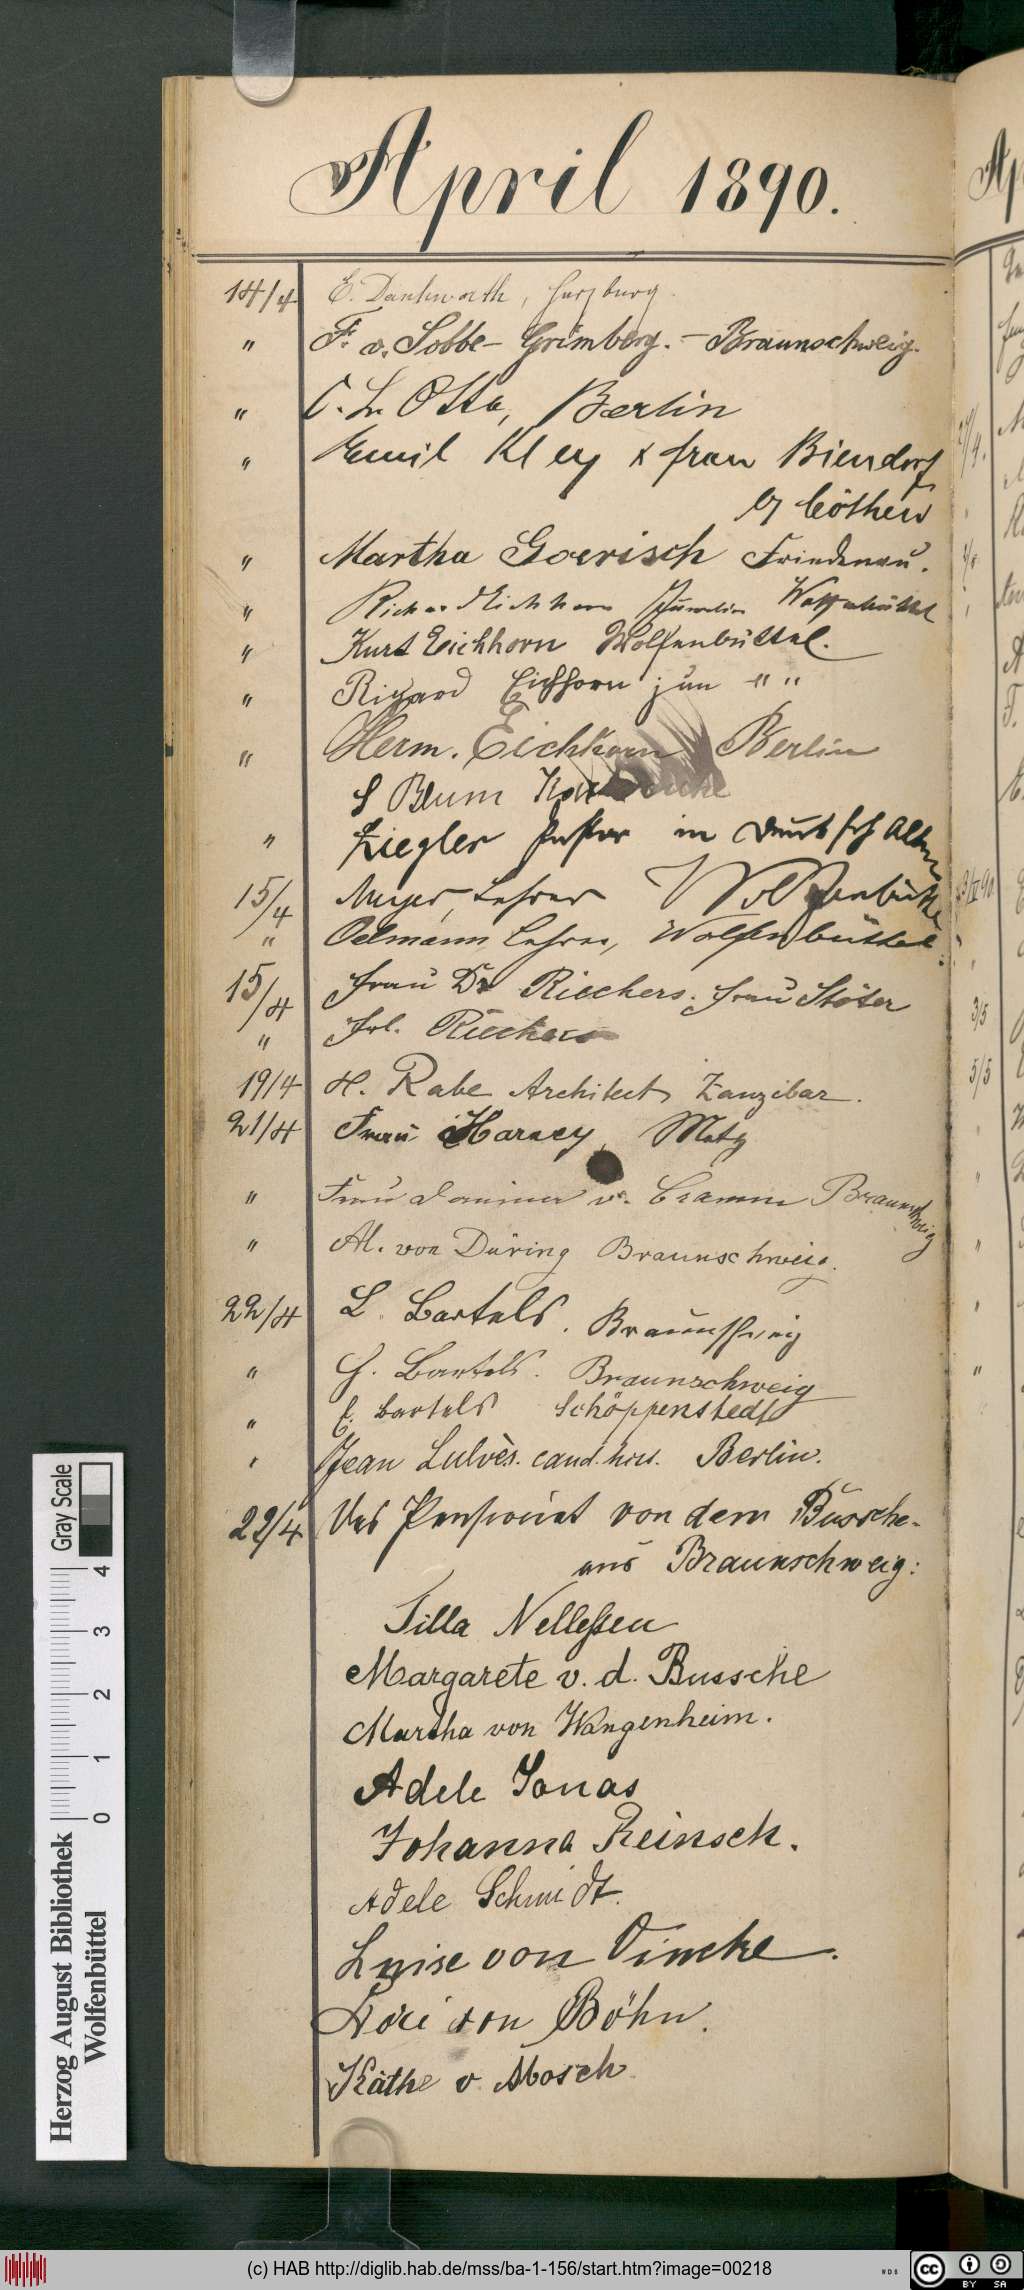 April 1890.
14/4 E. Dankworth, Harzburg.
" F. v. Sobbe - Grimberg. - Braunschweig.
" Otto, Berlin
" Emil Kley & frau Biendorf
b/ Cöthen
" Martha Goerisch Friedenau.
" Wolfenbüttel
" Kurt Eichhorn Wolfenbüttel.
" Richard Eichhorn jun " "
" Herm. Eichhorn Berlin
Blum
" Ziegler Pastor in
15/4 Meyer, Lehrer Wolfenbüttel
" Oelmann Lehrer, Wolfenbüttel.
15/4 Frau Dr Riechers. Frau Stöter
" Frl. Riechers
19/4 H. Rabe Architect, Zanzibar.
21/4 Frau Metz
" Frau v. Cramm Braunschweig
" Al. von Düring Braunschweig.
22/4 L. Bartels. Braunschweig
" Bartels. Braunschweig
" Bartels Schöppenstedt
" Jean Lulvès. cand. Berlin.
22/4 Das Pensionat von dem Bussche-
aus Braunschweig:
Tilla Nelleßen
Margarete v. d. Bussche
Martha von Wangenheim.
Adele Jonas
Johanna Reinsch.
Adele Schmidt.
Luise von Vincke.
von Böhn.
Käthe v. Mosch.
Gray Scale
0 1 2 3 4
Herzog August Bibliothek
Wolfenbüttel
(c) HAB http://diglib.hab.de/mss/ba-1-156/start.htm?image=00218
cc BY SA